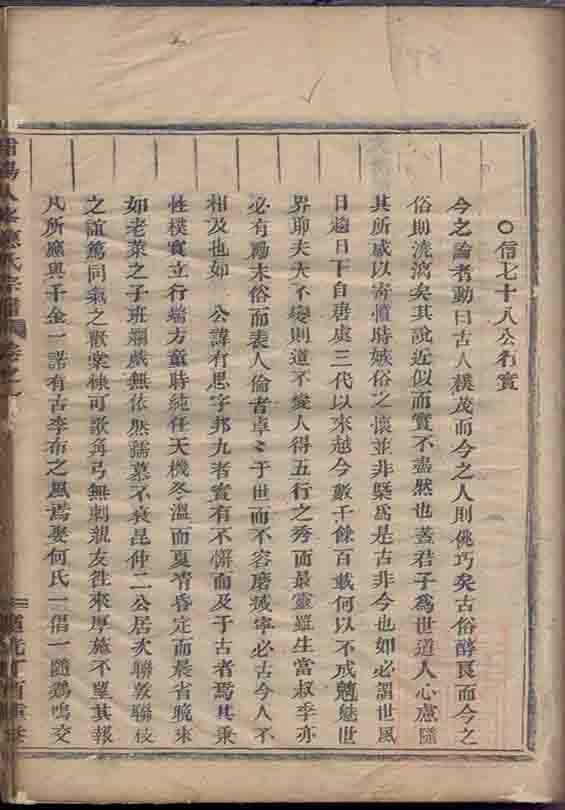 ○信七十八公行實
今之論者動曰古人樸茂而今之人則佻巧矣古俗醇良而今之
俗則澆漓矣其說近似而實不盡然也蓋君子為世道人心慮隨
其所感以寄憤時嫉俗之懷並非槩為是古非今也如必謂世風
日趨日下自唐虞三代以來越今數千餘百載何以不成魑魅世
界耶夫天不變則道不變人得五行之秀而最靈雖生當叔季亦
必有勵末俗而表人倫者卓卓于世而不容磨滅寧必古今人不
相及也如 公諱有思字邦九者實有不懈而及于古者焉其秉
性樸實立行端方童時純任天機冬溫而夏凊昏定而晨省晚來
如老萊之子班斕戲無依然孺慕不衰昆仲二公居次聯敦聯枝
之誼篤同氣之歡棠棣可歌角弓無刺親友往來厚施不望其報
凡所應與千金一諾有古季布之風焉娶何氏一倡一隨鷄鳴交
氏宗譜 卷之
道光丁酉重修